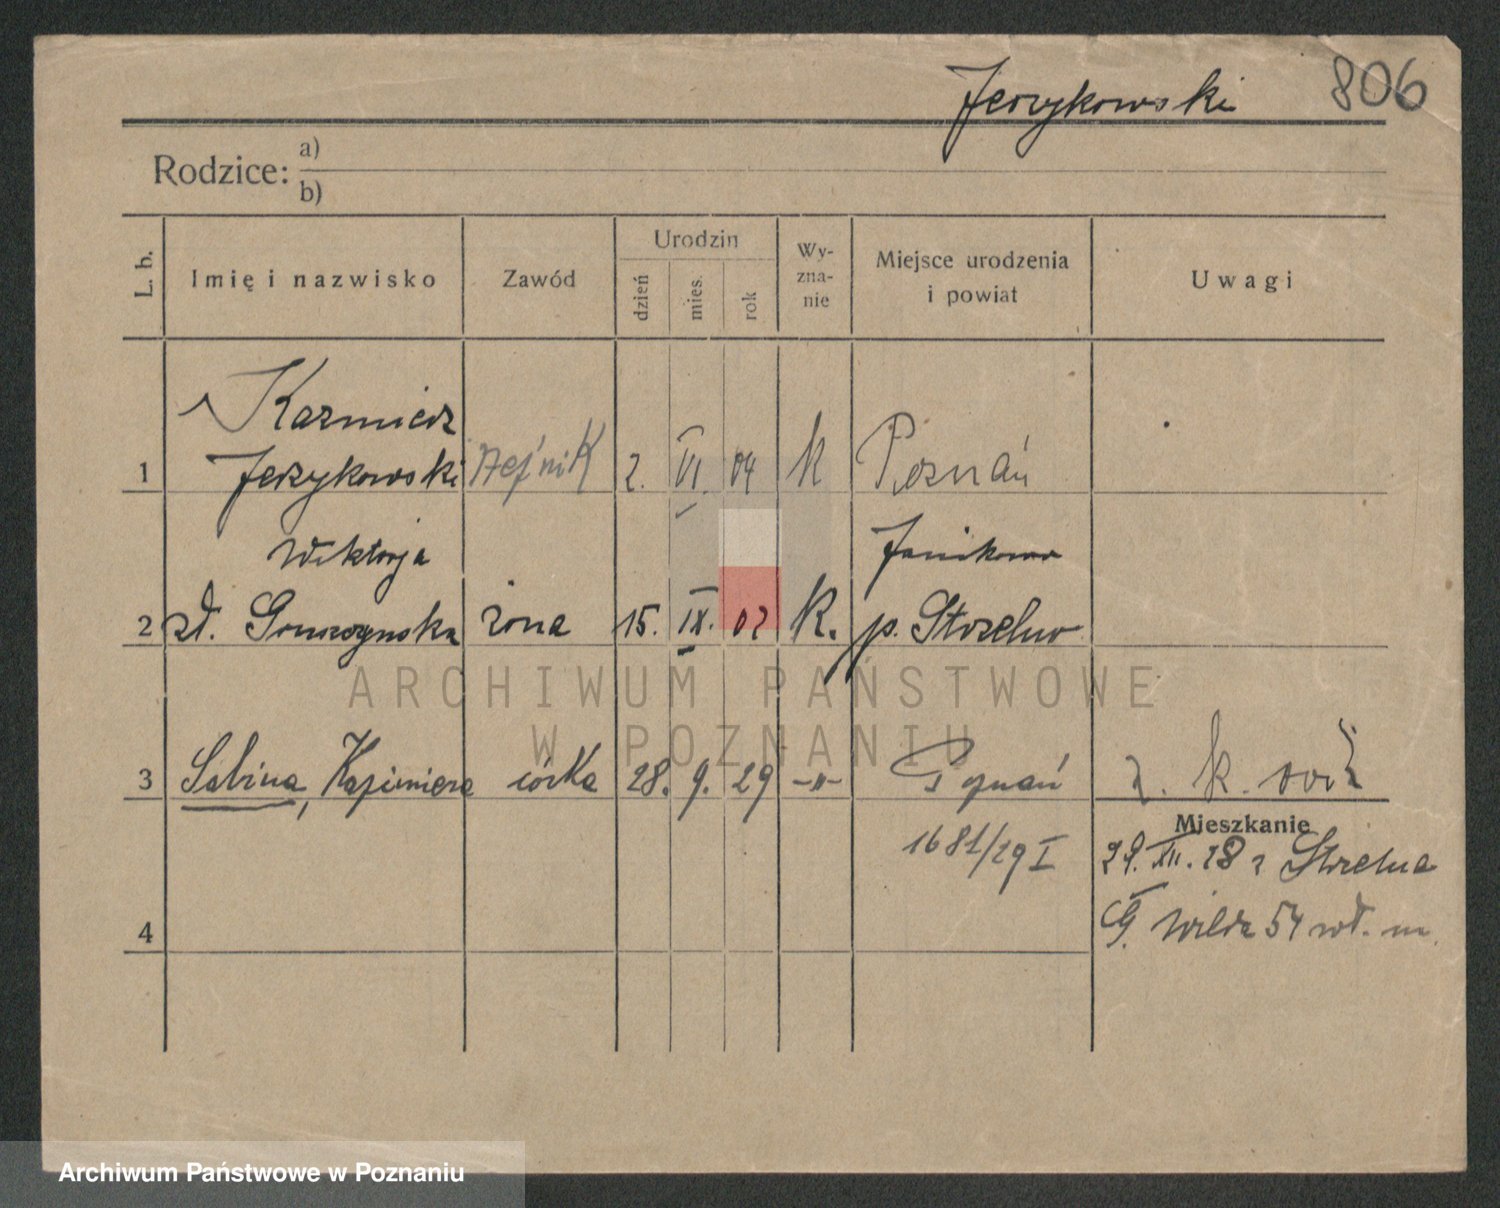 Jerzykowski 806
Rodzice: a)
b)
L. b. Imię i nazwisko Zawód Urodzin dzień mies. rok Wy-zna-nie Miejsce urodzenia i powiat Uwagi
Kazmierz
1 Jerzykowski 2. VI. 04 k Poznań
Wiktorja Janikowo
2 żona 15. IX. 02 k. p. Strzelno
ARCHIWUM PAŃSTWOWE
W POZNANIU
3 Sabina, Kazimiera córka 28. 9. 29 -"- Poznań z. k.
Mieszkanie
1681/29 I 29. XII. 28 z Strzelna
4 G. Wilda 54 wł. m.
Archiwum Państwowe w Poznaniu